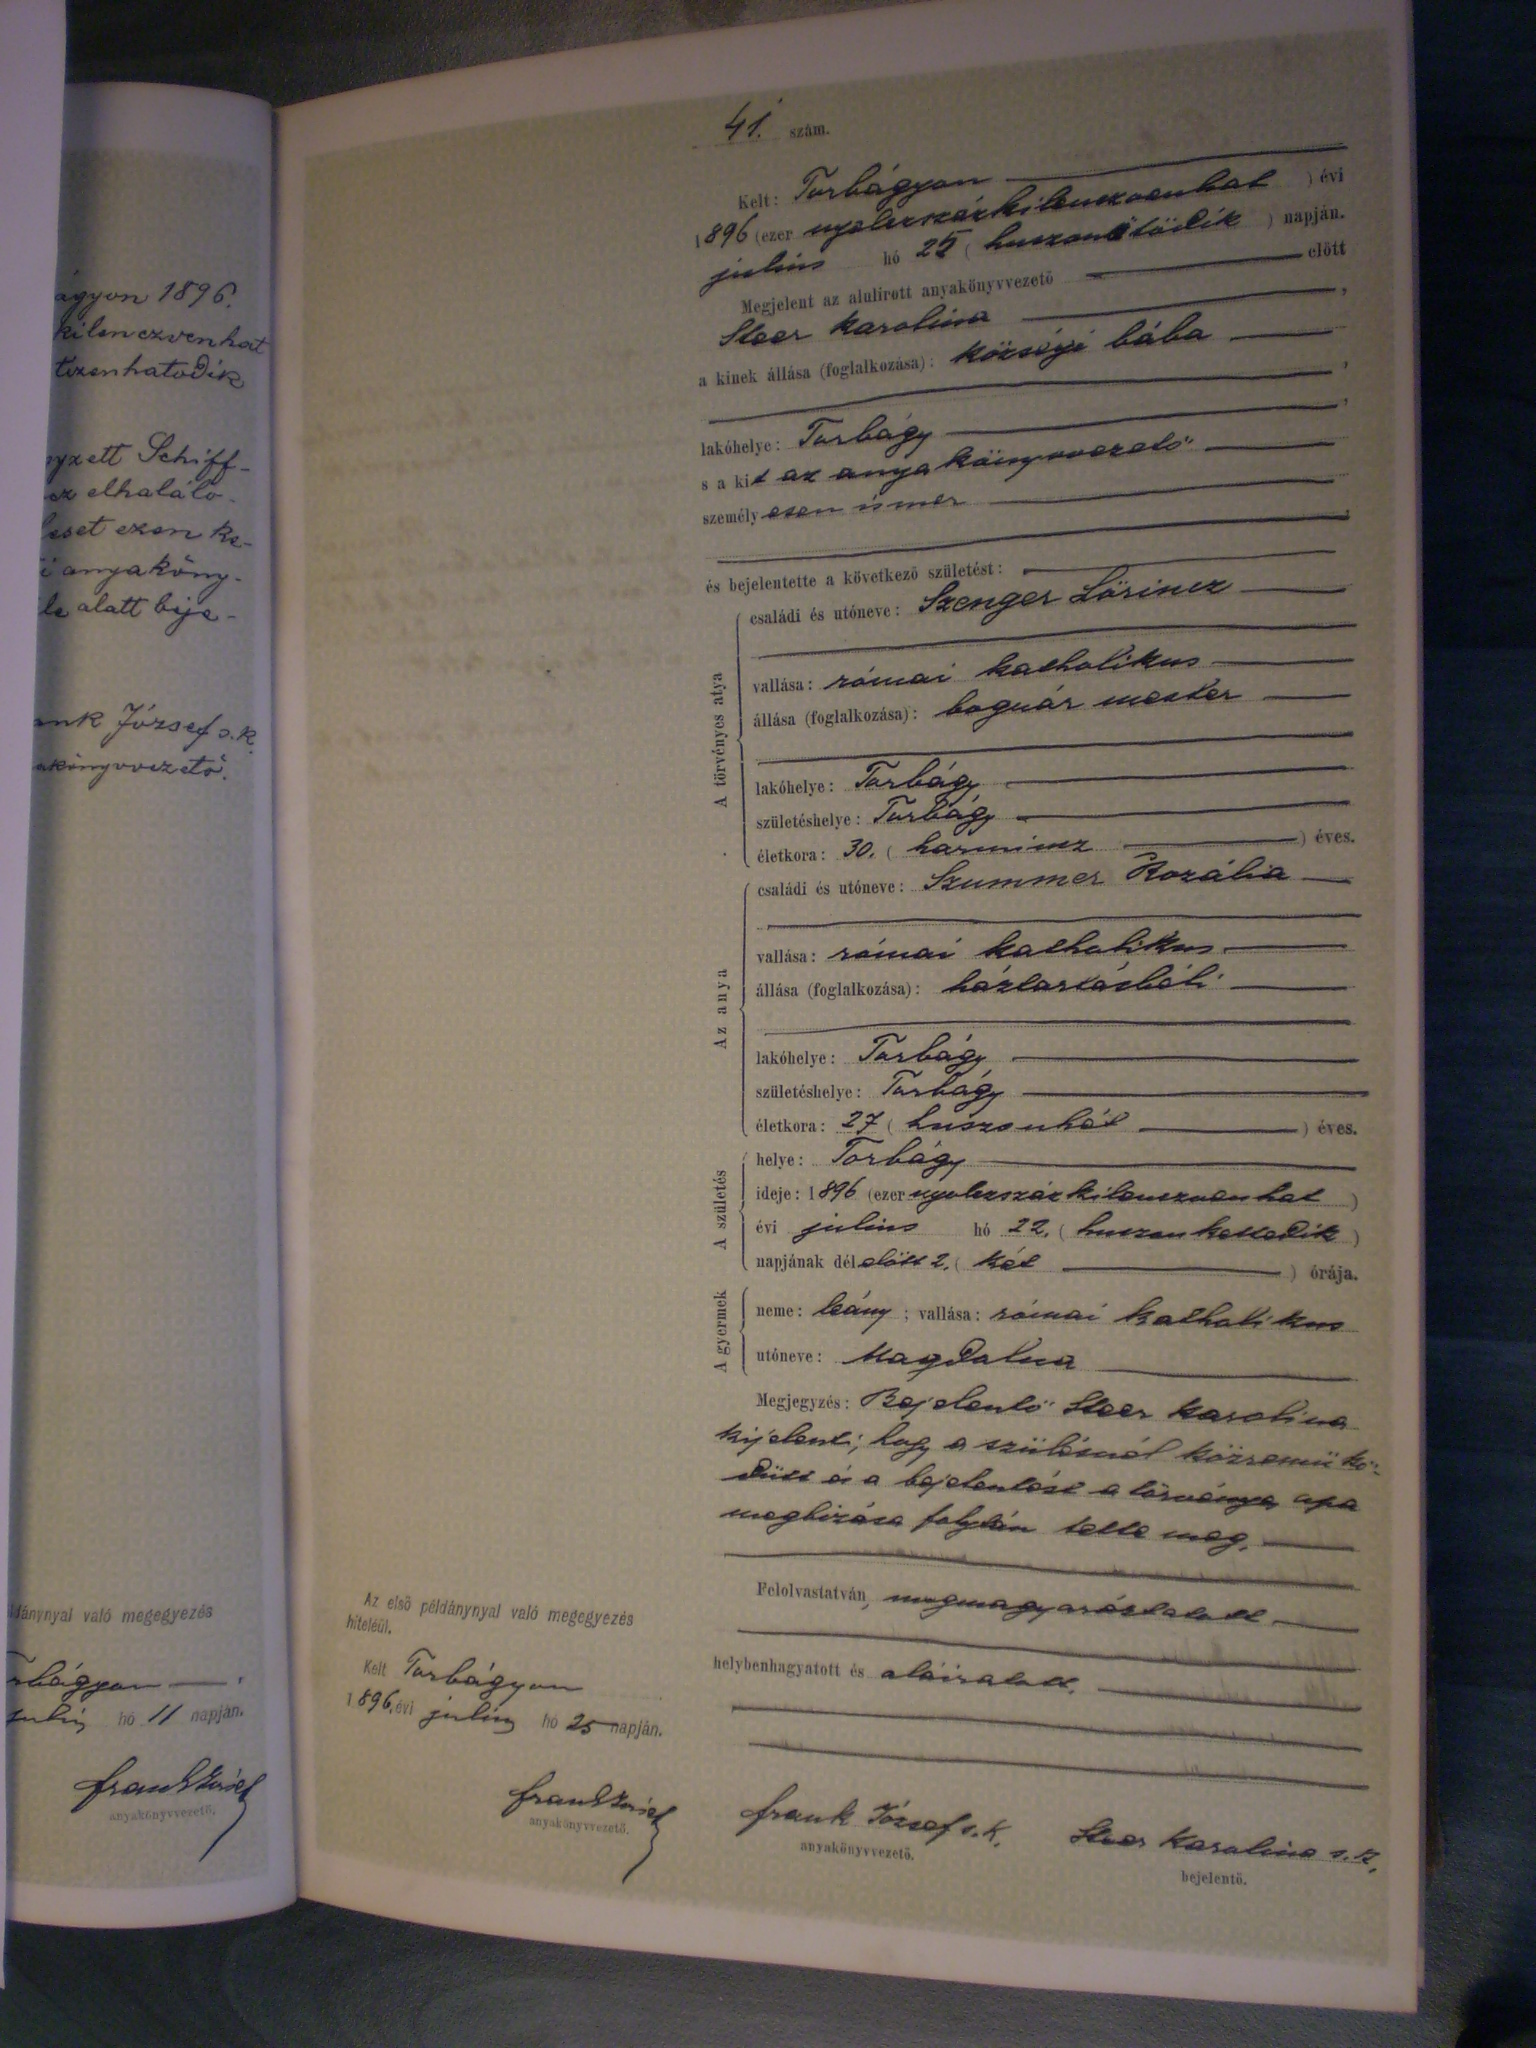 ágyon 1896.
kilenczvenhat
tizenhatodik
yzett Schiff-
ez elhalálo-
eset ezen ke-
i anyaköny-
le alatt beje-
ank József s.k.
akönyvvezető.
ldánynyal való megegyezés
rbágyon
hó 11 napján.
Frank József
anyakönyvvezető.
41. szám.
Kelt: Torbágyon
1896 (ezer nyolczszázkilenczvenhat ) évi
julius hó 25 ( huszonötödik ) napján.
Megjelent az alulirott anyakönyvvezető előtt
Steer Karolina ,
a kinek állása (foglalkozása): községi bába
,
lakóhelye: Torbágy ,
s a kit az anyakönyvvezető
személyesen ismer
,
és bejelentette a következő születést:
A törvényes atya
családi és utóneve: Szenger Lőrincz
vallása: római katholikus
állása (foglalkozása): bognár mester
lakóhelye: Torbágy
születéshelye: Torbágy
életkora: 30. ( harmincz ) éves.
Az anya
családi és utóneve: Szummer Rozália
vallása: római katholikus
állása (foglalkozása): háztartásbeli
lakóhelye: Torbágy
születéshelye: Torbágy
életkora: 27 ( huszonhét ) éves.
A születés
helye: Torbágy
ideje: 1896 (ezer nyolczszázkilenczvenhat )
évi julius hó 22. ( huszonkettedik )
napjának délelőtt 2. ( két ) órája.
A gyermek
neme: leány ; vallása: római katholikus
utóneve: Magdolna
Megjegyzés: Bejelentő Steer Karolina
kijelenti, hogy a szülésnél közremükö-
dött és a bejelentést a törvényes apa
megbizása folytán tette meg.
Felolvastatván, megmagyaráztatott
helybenhagyatott és aláiratott.
Az első példánynyal való megegyezés
hiteléül.
Kelt Torbágyon
1896. évi julius hó 25 napján.
Frank József
anyakönyvvezető.
Frank József s.k.
anyakönyvvezető.
Steer Karolina s.k.
bejelentő.